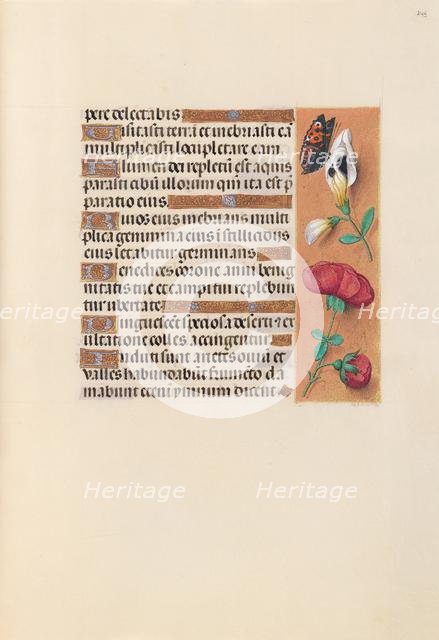 pere delectabis
Uisitasti terrā et inebriasti eā
multiplicasti locupletare eam
Flumen dei repletū est aquis
parasti cibū illorum qm̄ ita est p̄
paratio eius
Riuos eius inebrians multi
plica genimina eius ī stillicidiis
eius letabitur germinans
Benedices corone anni benig
nitatis tue et campi tui replebun
tur ubertate
Pinguescēt speciosa deserti et
exultatione colles accingentur
Induti sunt arietes ouiū et
valles habundabūt frumēto cla
mabunt etenī ymnum dicent
Heritage
Heritage
Heritage
Heritage
Heritage
Heritage